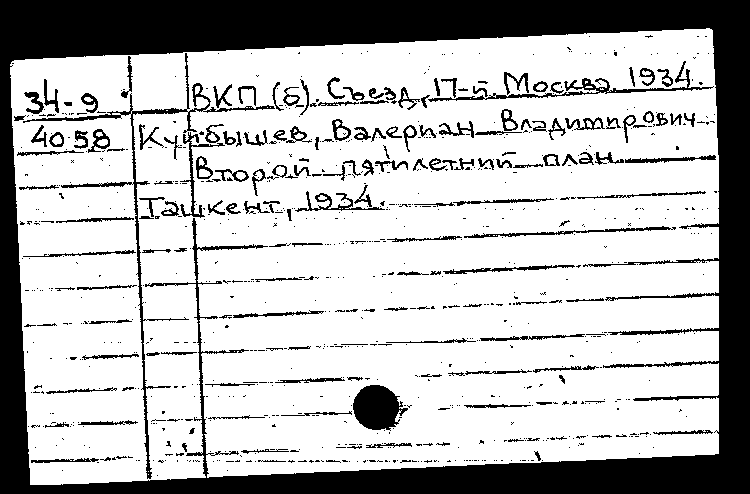 34-9 ВКП(б). Съезд, 17-й. Москва. 1934.
4058 Куйбышев, Валериан Владимирович
Второй пятилетний план
Ташкент, 1934.